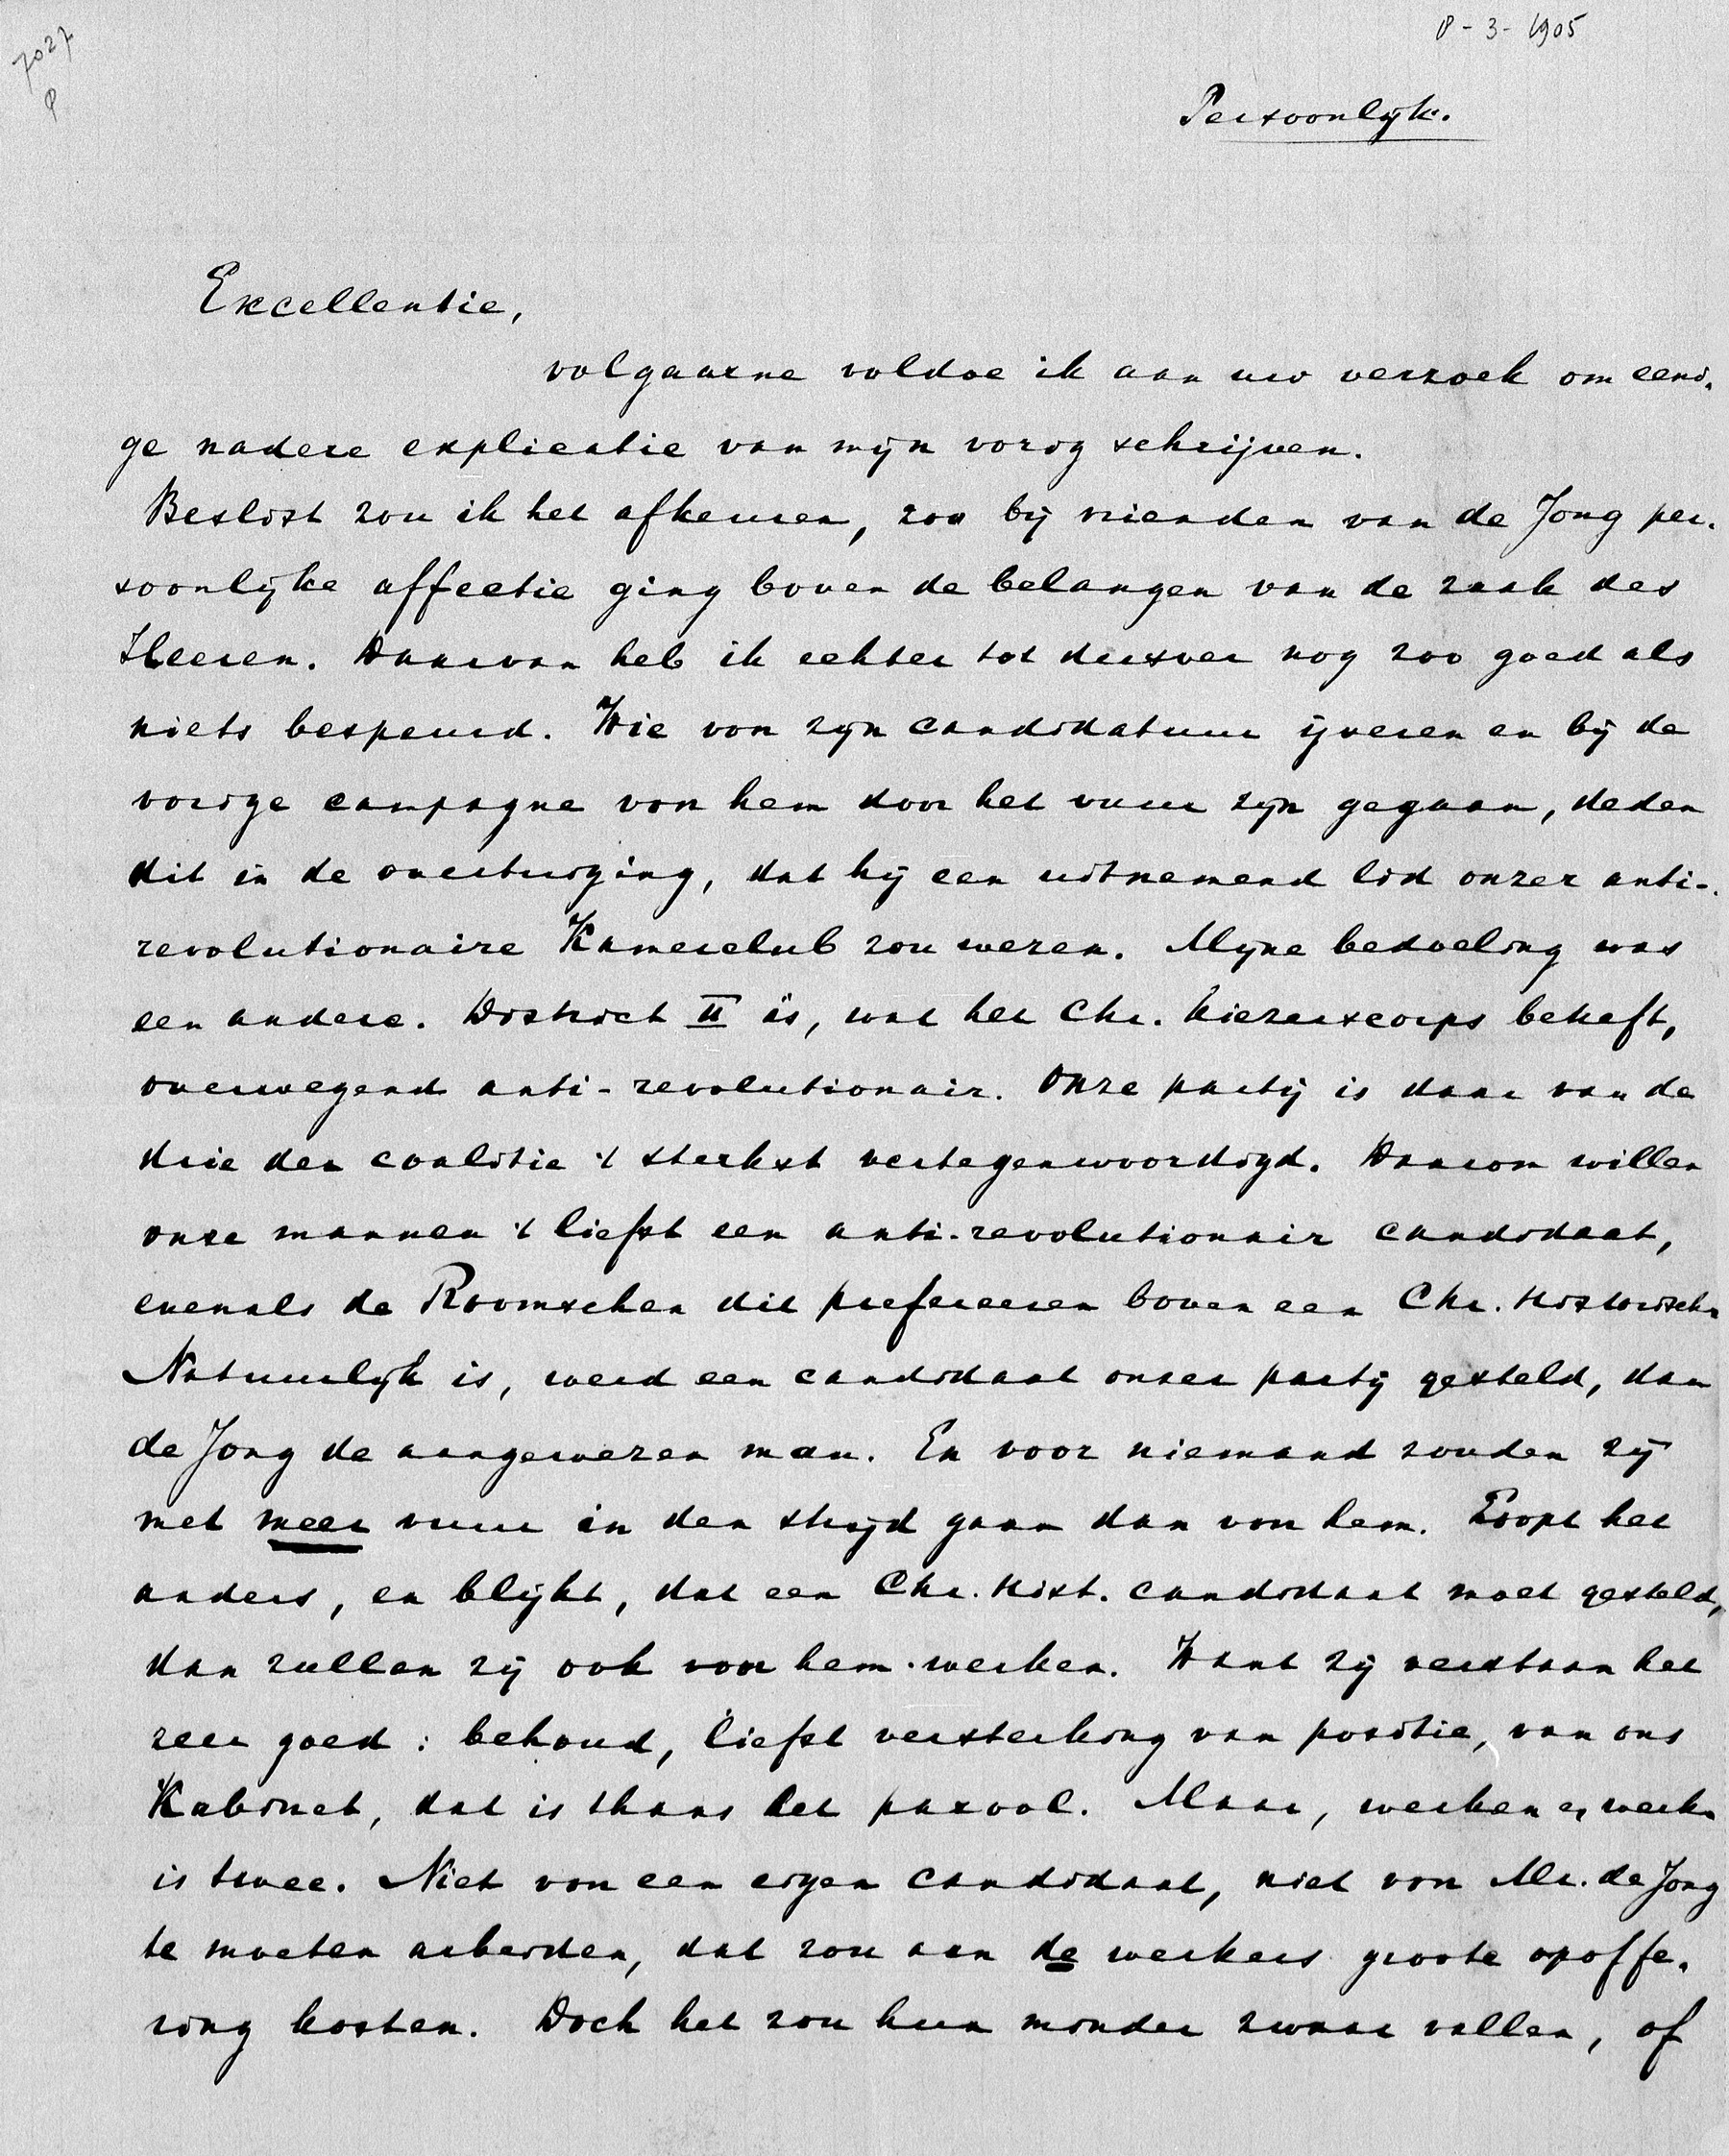 7027
P
8-3-1905
Persoonlijk.
Excellentie,
volgaarne voldoe ik aan uw verzoek om eeni-
ge nadere explicatie van mijn vorig schrijven.
Beslist zou ik het afkeuren, zoo bij vrienden van de Jong per-
soonlijke affectie ging boven de belangen van de zaak des
Heeren. Daarvan heb ik echter tot dusver nog zoo goed als
niets bespeurd. Wie voor zijn candidatuur ijveren en bij de
vorige campagne voor hem door het vuur zijn gegaan, deden
dit in de overtuiging, dat hij een uitnemend lid onzer anti-
revolutionaire Kamerclub zou wezen. Mijne bedoeling was
een andere. District II is, wat het Chr. kiezerscorps betreft,
overwegend anti-revolutionair. Onze partij is daar van de
drie der coalitie 't sterkst vertegenwoordigd. Daarom willen
onze mannen 't liefst een anti-revolutionair candidaat,
evenals de Roomschen dit prefereeren boven een Chr. Historische
Natuurlijk is, werd een candidaat onzer partij gesteld, dan
de Jong de aangewezen man. En voor niemand zouden zij
met meer vuur in den strijd gaan dan voor hem. Loopt het
anders, en blijkt, dat een Chr. Hist. candidaat moet gesteld,
dan zullen zij ook voor hem werken. Want zij verstaan het
zeer goed: behoud, liefst versterking van positie, van ons
Kabinet, dat is thans het parool. Maar, werken en werken
is twee. Niet voor een eigen candidaat, niet voor Mr. de Jong
te moeten arbeiden, dat zou aan de werkers groote opoffe-
ring kosten. Doch het zou hun minder zwaar vallen, of